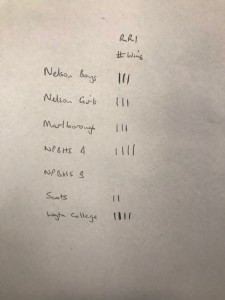 RR1
# Wins
Nelson Boys III
Nelson Girls III
Marlborough III
NPBHS A IIII
NPBHS B
Scots II
College IIII